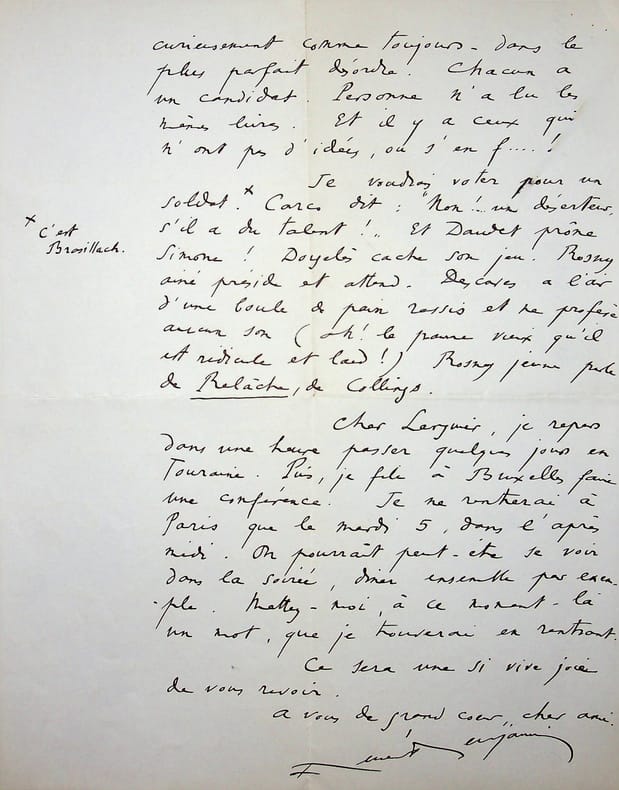 curieusement comme toujours - dans le
plus parfait désordre. Chacun a
un candidat. Personne n'a lu les
mêmes livres. Et il y a ceux qui
n'ont pas d'idées, ou s'en f....!
Je voudrais voter pour un
soldat.x Carco dit : "Non! un déserteur,
s'il a du talent!" Et Daudet prône
Simone ! Dorgelès cache son jeu. Rosny
aîné préside et attend. Descaves a l'air
d'une boule de pain rassis et ne profère
aucun son (oh! le pauvre vieux qu'il
est ridicule et laid!) Rosny jeune parle
de Relâche, de Collings.
x C'est
Brasillach.
Cher Larguier, je repars
dans une heure passer quelques jours en
Touraine. Puis, je file à Bruxelles faire
une conférence. Je ne rentrerai à
Paris que le mardi 5, dans l'après
midi. On pourrait peut-être se voir
dans la soirée, dîner ensemble par exem-
-ple. Mettez-moi, à ce moment-là
un mot, que je trouverai en rentrant.
Ce sera une si vive joie
de vous revoir.
A vous de grand coeur, cher ami.
René Benjamin